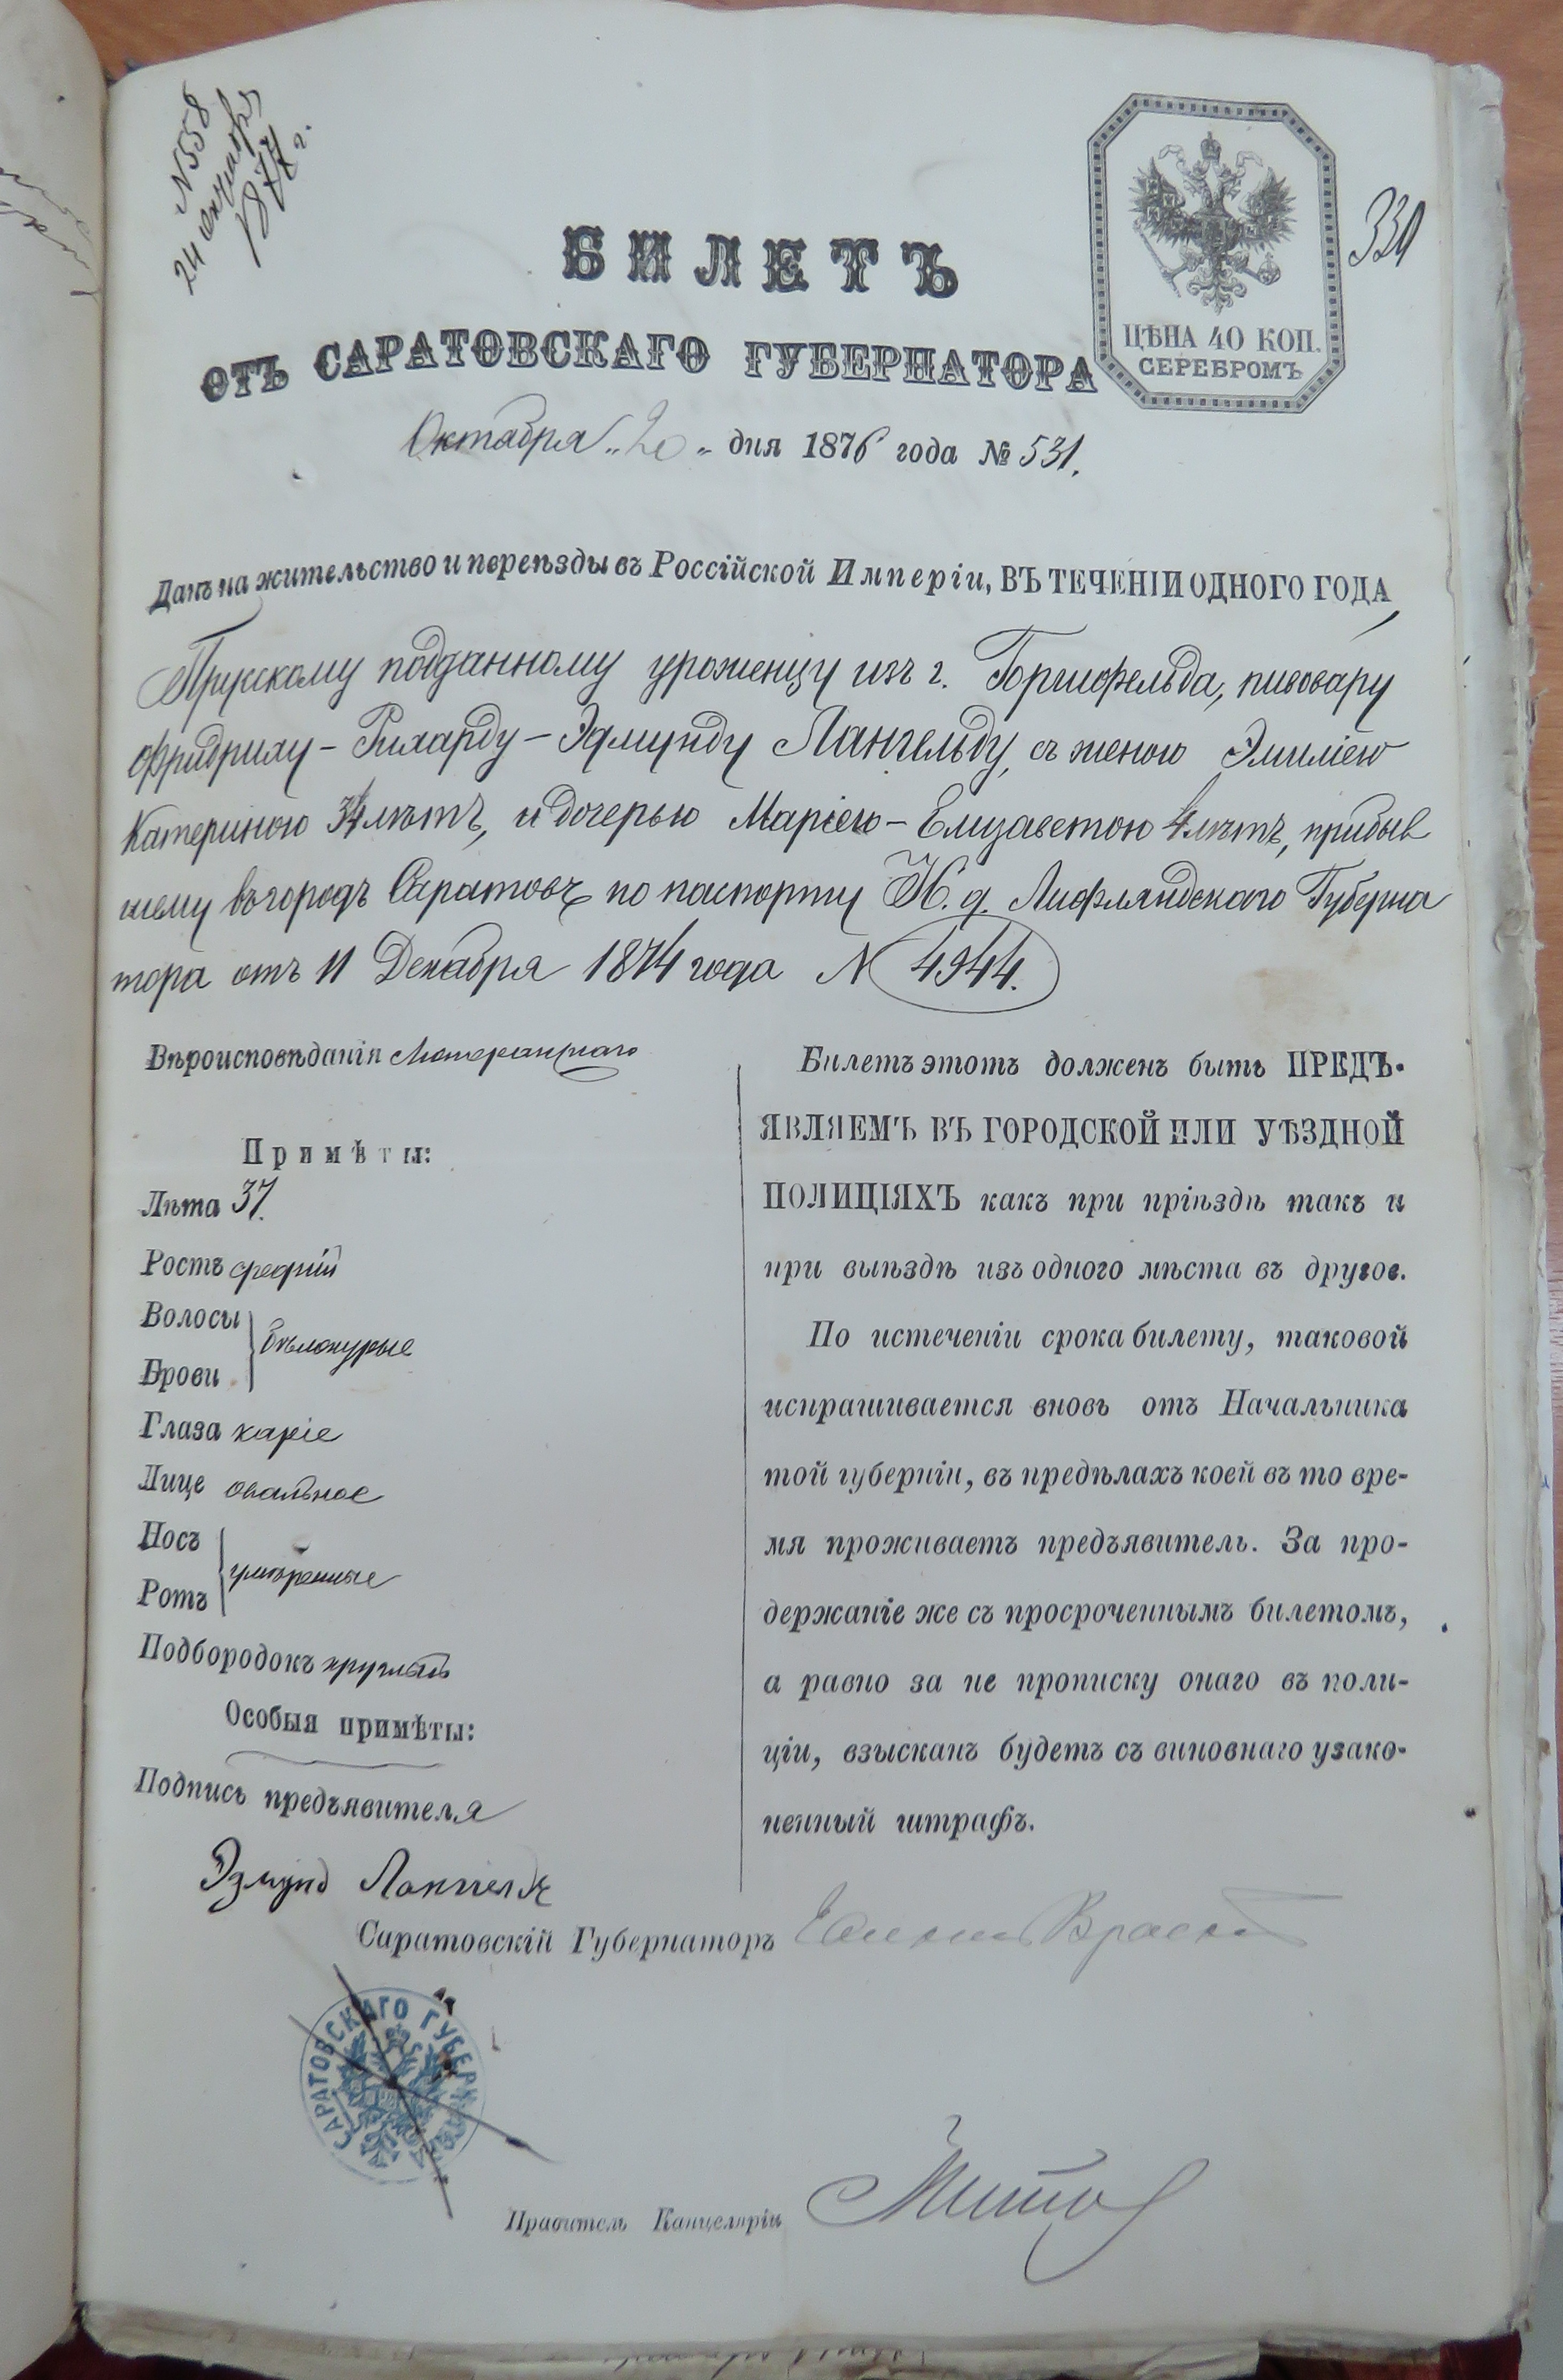 N 558
24 января
1877 г.
330
БИЛЕТЪ
ОТЪ САРАТОВСКАГО ГУБЕРНАТОРА
ЦѢНА 40 КОП.
СЕРЕБРОМЪ
Октября „20„ дня 1876 года № 531.
Данъ на жительство и переѣзды въ Россійской Имперіи, ВЪ ТЕЧЕНІИ ОДНОГО ГОДА,
Прусскому подданному уроженцу изъ г. Горнсфельда, пивовару
Фридриху-Рихарду-Эдмунду Лангельду, съ женою Эмиліею
Катериною 34 лѣтъ, и дочерью Маріею-Елизаветою 4 лѣтъ, прибыв
шему въ городъ Саратовъ по паспорту И. д. Лифляндскаго Губерна
тора отъ 11 Декабря 1874 года N 4944.
Вѣроисповѣданія Лютеранскаго
Примѣты:
Лѣта 37.
Ростъ средній
Волосы
Брови
бѣлокурые
Глаза каріе
Лице овальное
Носъ
Ротъ
умѣренные
Подбородокъ круглый
Особыя примѣты:
Подпись предъявителя
Эдмунд
Билетъ этотъ долженъ быть ПРЕДЪ-
ЯВЛЯЕМЪ ВЪ ГОРОДСКОЙ ИЛИ УѢЗДНОЙ
ПОЛИЦІЯХЪ какъ при пріѣздѣ такъ и
при выѣздѣ изъ одного мѣста въ другое.
По истеченіи срока билету, таковой
испрашивается вновь отъ Начальника
той губерніи, въ предѣлахъ коей въ то вре-
мя проживаетъ предъявитель. За про-
держаніе же съ просроченнымъ билетомъ,
а равно за не прописку онаго въ поли-
ціи, взысканъ будетъ съ виновнаго узако-
ненный штрафъ.
Саратовскій Губернаторъ
САРАТОВСКАГО ГУБЕРНАТОРА
Правитель Канцеляріи